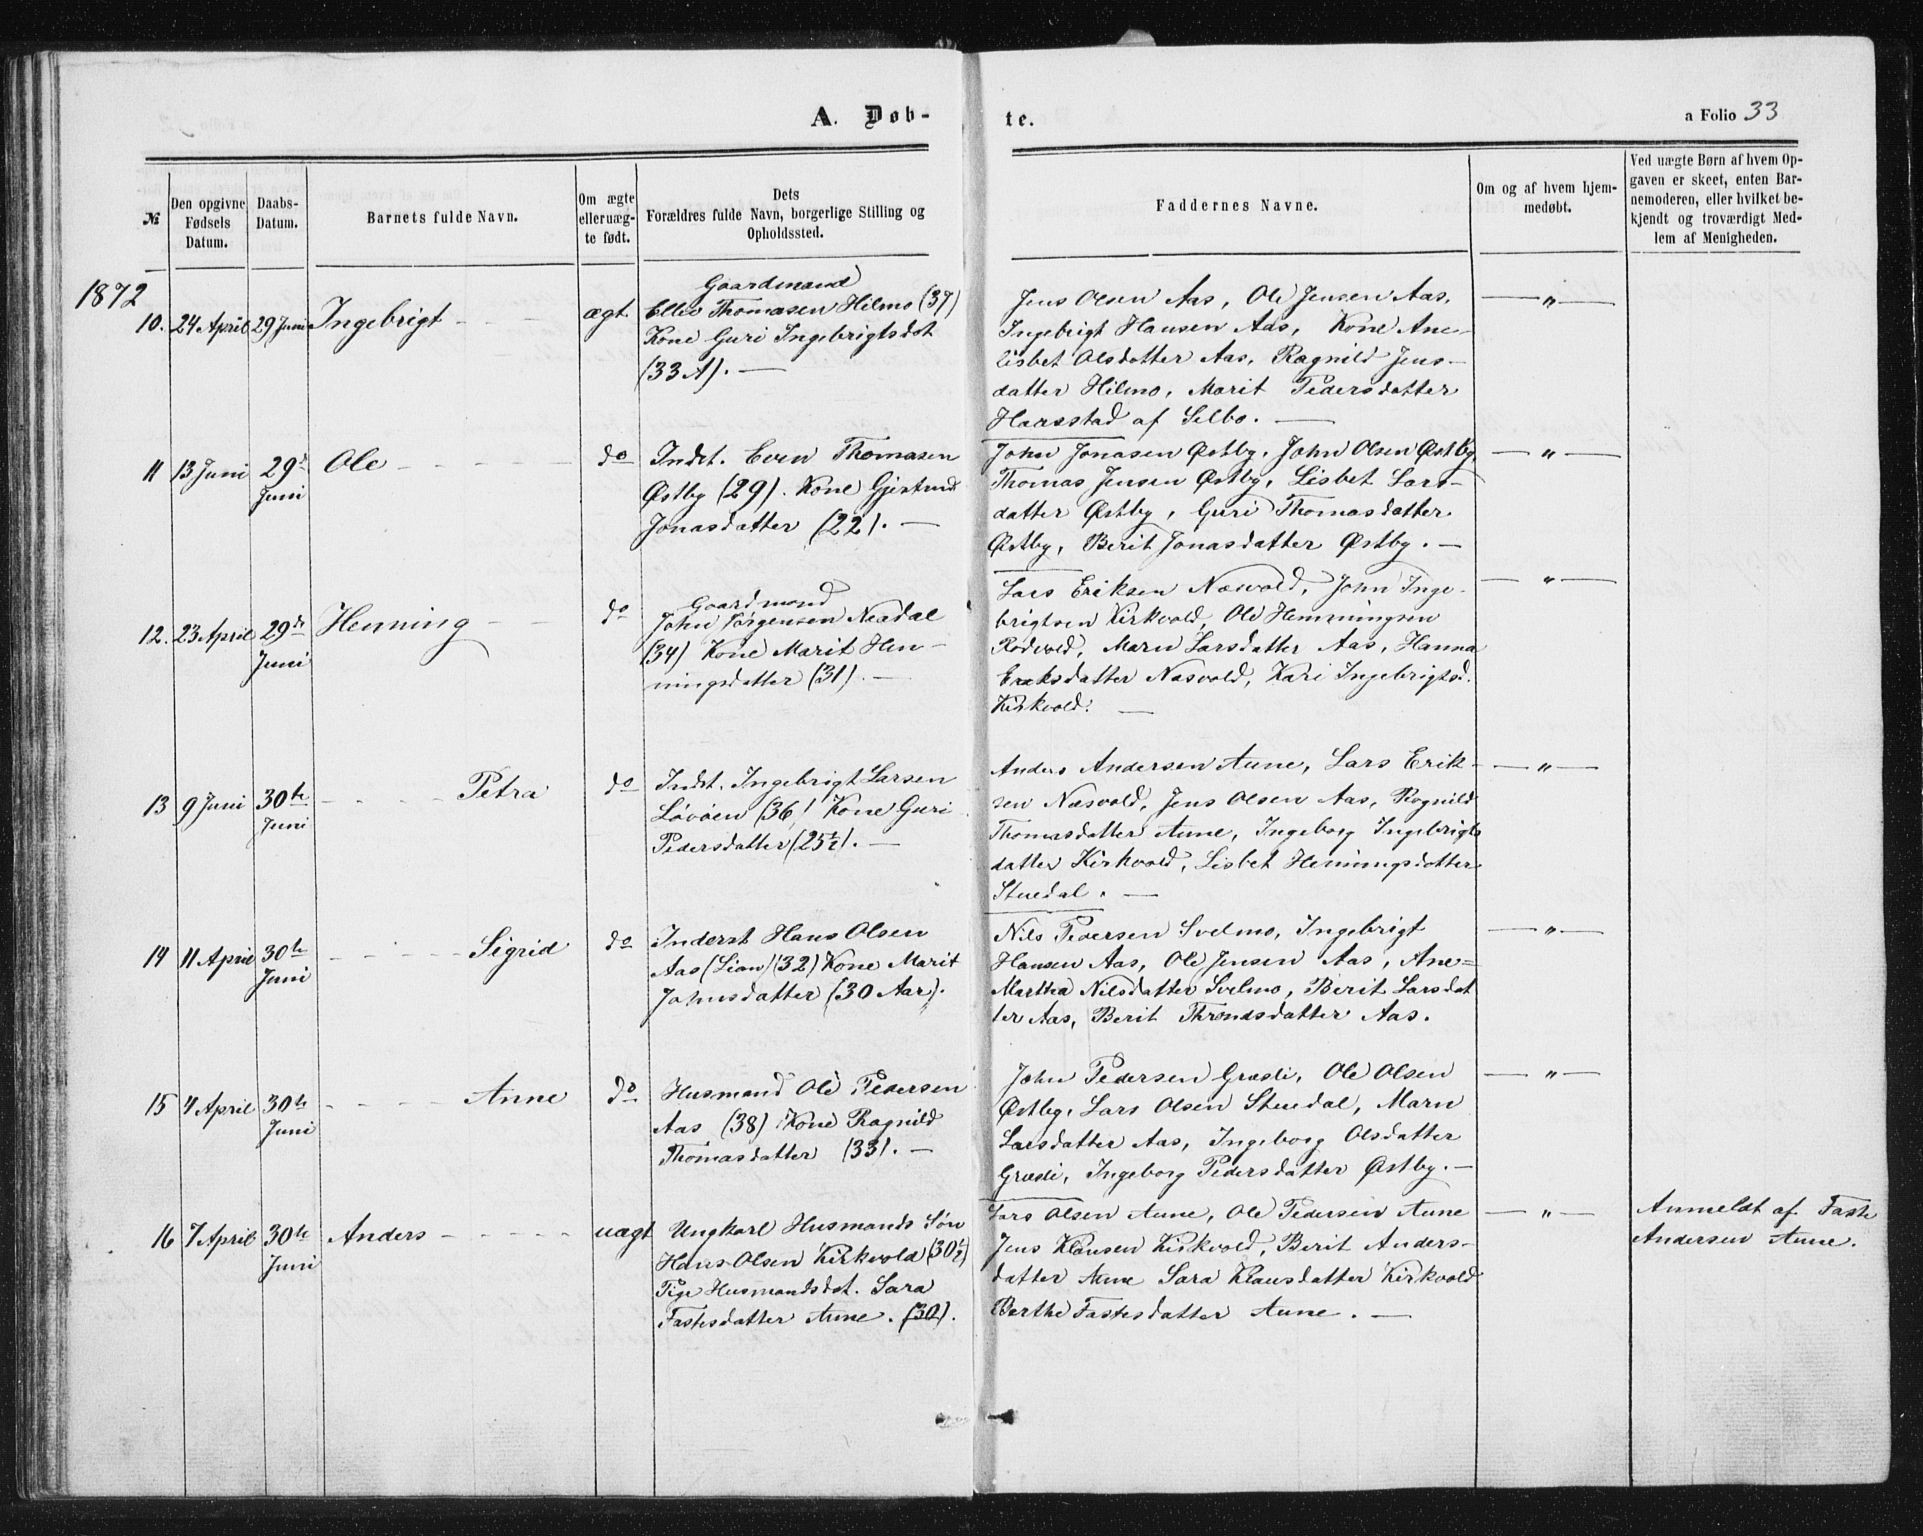 A. Døb-
te.
a Folio 33
№
Den opgivne
Fødsels
Datum.
Daabs-
Datum.
Barnets fulde Navn.
Om ægte
eller uæg-
te født.
Dets
Forældres fulde Navn, borgerlige Stilling og
Opholdssted.
Faddernes Navne.
Om og af hvem hjem-
medøbt.
Ved uægte Børn af hvem Op-
gaven er skeet, enten Bar-
nemoderen, eller hvilket be-
kjendt og troværdigt Med-
lem af Menigheden.
1872
10. 24 April 29 Juni Ingebrigt - - - ægt.
Gaardmand
Ellev Thomasen Hilmo (37)
Kone Guri Ingebrigtsdat
(33 A). —
Jens Olsen Aas, Ole Jensen Aas,
Ingebrigt Hansen Aas, Kone Ane-
lisbet Olsdatter Aas, Ragnild Jens-
datter Hilmo, Marit Pedersdatter
Haarstad af Selbo. —
— " —
11 13 Juni 29de
Juni
Ole - - - - - do
Indst. Even Thomasen
Østby (29). Kone Gjertrud
Jonasdatter (22). —
John Jonasen Østby, John Olsen Østby,
Thomas Jensen Østby, Lisbet Lars-
datter Østby, Guri Thomasdatter
Østby, Berit Jonasdatter Østby. —
— " —
12. 23 April 29de
Juni
Henning - - do
Gaardmand
John Jørgensen Neadal
(34) Kone Marit Hen-
ningsdatter (31). —
Lars Eriksen Næsvold, John Inge-
brigtsen Kirkvold, Ole Hemmingsen
Rødvold, Maru Larsdatter Aas, Hanna
Eriksdatter Næsvold, Kari Ingebrigtsd.
Kirkvold. —
— " —
13 9 Juni 30te
Juni
- - - - Petra do
Indst. Ingebrigt Larsen
Løvøen (36) Kone Guri
Pedersdatter (25½). —
Anders Andersen Aune, Lars Erik-
sen Næsvold, Jens Olsen Aas, Ragnild
Thomasdatter Aune, Ingeborg Ingebrigts
datter Kirkvold, Lisbet Henningsdatter
Stuedal. —
— " —
14 11 April 30te
Juni
- - - - - Sigrid do
Inderst Hans Olsen
Aas (Lian) (32) Kone Marit
Johnsdatter (30 Aar).
Nils Pedersen Svelmo, Ingebrigt
Hansen Aas, Ole Jensen Aas, Ane=
Martha Nilsdatter Svelmo, Berit Larsdat
ter Aas, Berit Throndsdatter Aas.
— " —
15 4 April 30te
Juni
- - - - - Anne do
Husmand Ole Pedersen
Aas (38) Kone Ragnild
Thomasdatter (33). —
John Pedersen Græsli, Ole Olsen
Østby, Lars Olsen Stuedal, Maru
Larsdatter Aas, Ingeborg Olsdatter
Græsli, Ingeborg Pedersdatter Østby. —
— " —
16 7 April 30te
Juni
Anders - - - - - uægt
Ungkarl Husmands Søn
Hans Olsen Kirkvold (30½)
Pige Husmandsdat. Sara
Fastesdatter Aune. (30).
Lars Olsen Aune, Ole Pedersen Aune
Jens Klausen Kirkvold, Berit Anders-
datter Aune Sara Klausdatter Kirkvold
Berthe Fastesdatter Aune. —
— " —
Anmeldt af Faste
Andersen Aune.